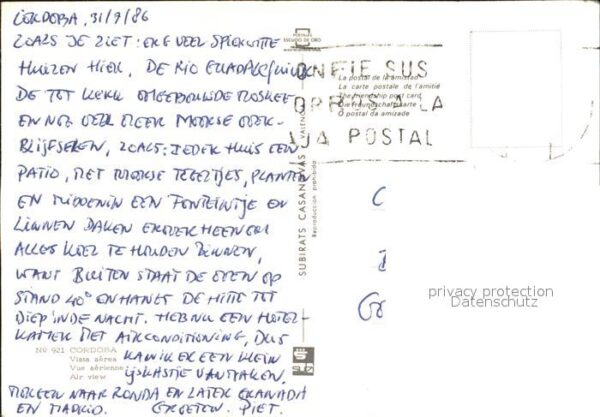 CORDOBA, 31/7/86
ZOALS JE ZIET: ERG VEEL SPIERWITTE
HUIZEN HIER, DE RIO GUADALQUIVIR
DE TOT KERK OMGEBOUWDE MOSKEE
EN NOG VEEL MEER MOORSE OVER-
BLIJFSELEN, ZOALS: IEDER HUIS EEN
PATIO, MET MOORSE TEGELTJES, PLANTEN
EN MIDDENIN EEN FONTEINTJE EN
LINNEN DAKEN EROVER HEEN OM
ALLES KOEL TE HOUDEN BINNEN,
WANT BUITEN STAAT DE OVEN OP
STAND 40° EN HANGT DE HITTE TOT
DIEP IN DE NACHT. HEB NU EEN HOTEL-
KAMER MET AIRCONDITIONING, DUS
KAN IK ER EEN KLEIN
IJSKASTJE VAN MAKEN.
MORGEN NAAR RONDA EN LATER GRANADA
EN MADRID. GROETEN. PIET.
Nº 921 CORDOBA
Vista aérea
Vue aérienne
Air view
SUBIRATS CASANOVAS
Reproducción prohibida
POSTALES
ESCUDO DE ORO
ONFIE SUS
OPROS A LA
JA POSTAL
La postal de la amistad
La carte postale de l'amitié
The friendship post card
Die Freundschaftskarte
O postal da amizade
C
I
Gr
privacy protection
Datenschutz